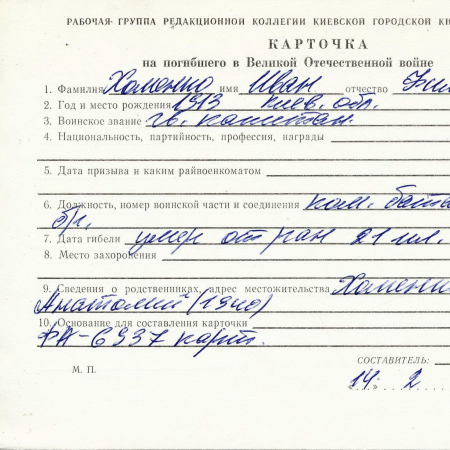 РАБОЧАЯ ГРУППА РЕДАКЦИОННОЙ КОЛЛЕГИИ КИЕВСКОЙ ГОРОДСКОЙ КН
КАРТОЧКА
на погибшего в Великой Отечественной войне
1. Фамилия Хоменко имя Иван отчество
2. Год и место рождения 1913 Киев. обл.
3. Воинское звание гв. капитан.
4. Национальность, партийность, профессия, награды
5. Дата призыва и каким райвоенкоматом
6. Должность, номер воинской части и соединения ком. бата
7. Дата гибели умер от ран 21
8. Место захоронения
9. Сведения о родственниках, адрес местожительства Хоменк
Анатолий (1940)
10. Основание для составления карточки
ФА-6337 карт.
СОСТАВИТЕЛЬ:
М. П.
14. 2